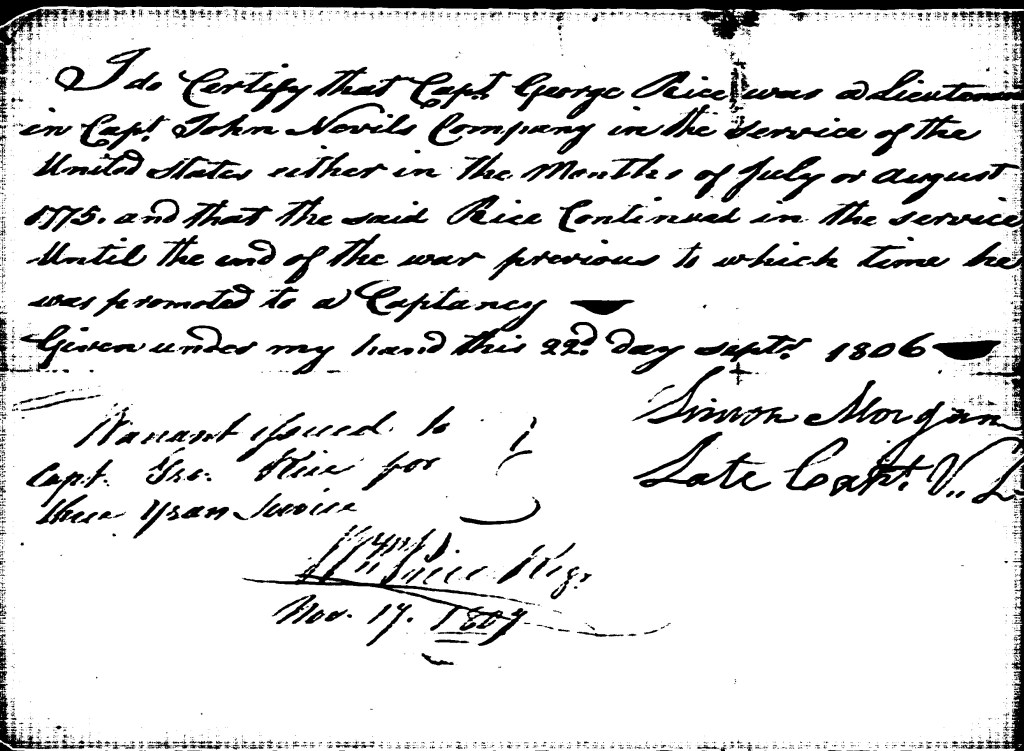 I do Certify that Capt. George Rice was a Lieutenan
in Capt. John Nevils Company in the service of the
United States either in the Months of July or august
1775. and that the said Rice Continued in the service
Until the end of the war previous to which time he
was promoted to a Captancy
Given under my hand this 22d. day septr. 1806
Simon Morgan
Late Capt. V. L
Warrant issued to
Capt. Geo. Rice for
three years Service
Wm. Price Regr
Nov. 17. 1807